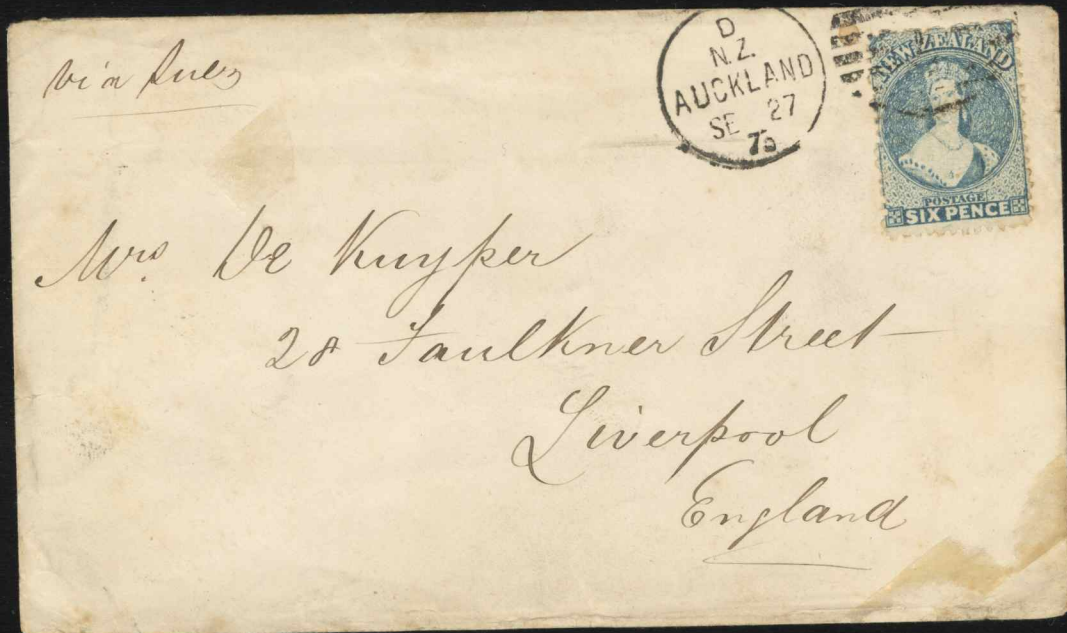 via Suez
D
N.Z.
AUCKLAND
SE 27
NEW ZEALAND
POSTAGE
SIX PENCE
Mrs. De Kuyper
28 Faulkner Street
Liverpool
England